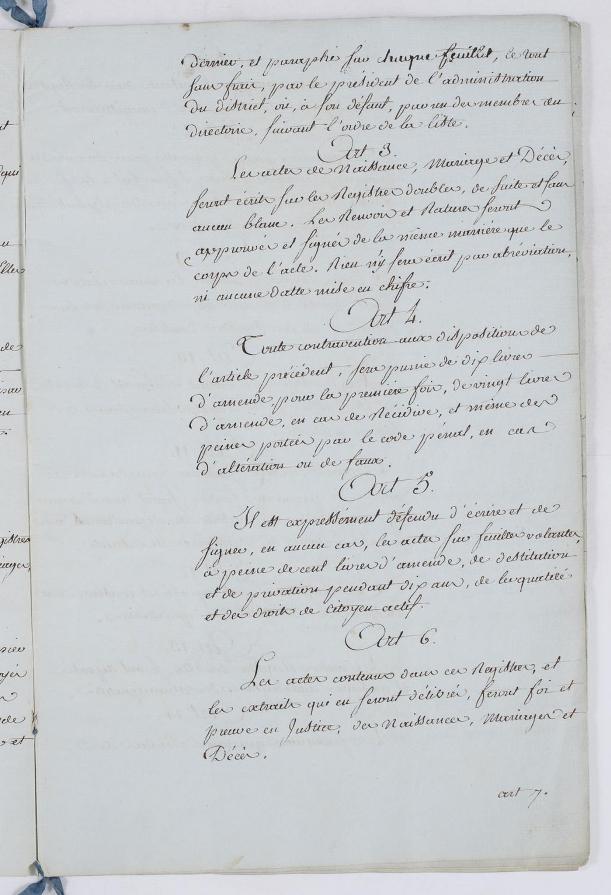 dernier, et paraphé sur chaque feuillet, le tout
sans frais, par le président de l'administration
du district, ou, à son défaut, par un des membres du
directoire, suivant l'ordre de la liste.
Art 3.
Les actes de Naissance, Mariage et Décès,
seront écrits sur les Registres doubles, de suite et sans
aucun blanc. Les Renvois et Ratures seront
approuvés et signés de la même manière que le
corps de l'acte. Rien n'y sera écrit par abréviation,
ni aucune datte mise en chifre.
Art 4.
Toute contravention aux dispositions de
l'article précédent, sera punie de dix livres
d'amende pour la première fois, de vingt livres
d'amende, en cas de Récidive, et même des
peines portées par le code pénal, en cas
d'altération ou de faux.
Art 5.
Il est expressément défendu d'écrire et de
signer, en aucun cas, les actes sur feuilles volantes,
à peine de cent livres d'amende, de destitution
et de privation pendant dix ans, de la qualité
et des droits de citoyen actif.
Art 6.
Les actes contenus dans ces Registres, et
les extraits qui en seront délivrés, feront foi et
preuve en Justice, des Naissances, Mariages et
Décès.
art 7.